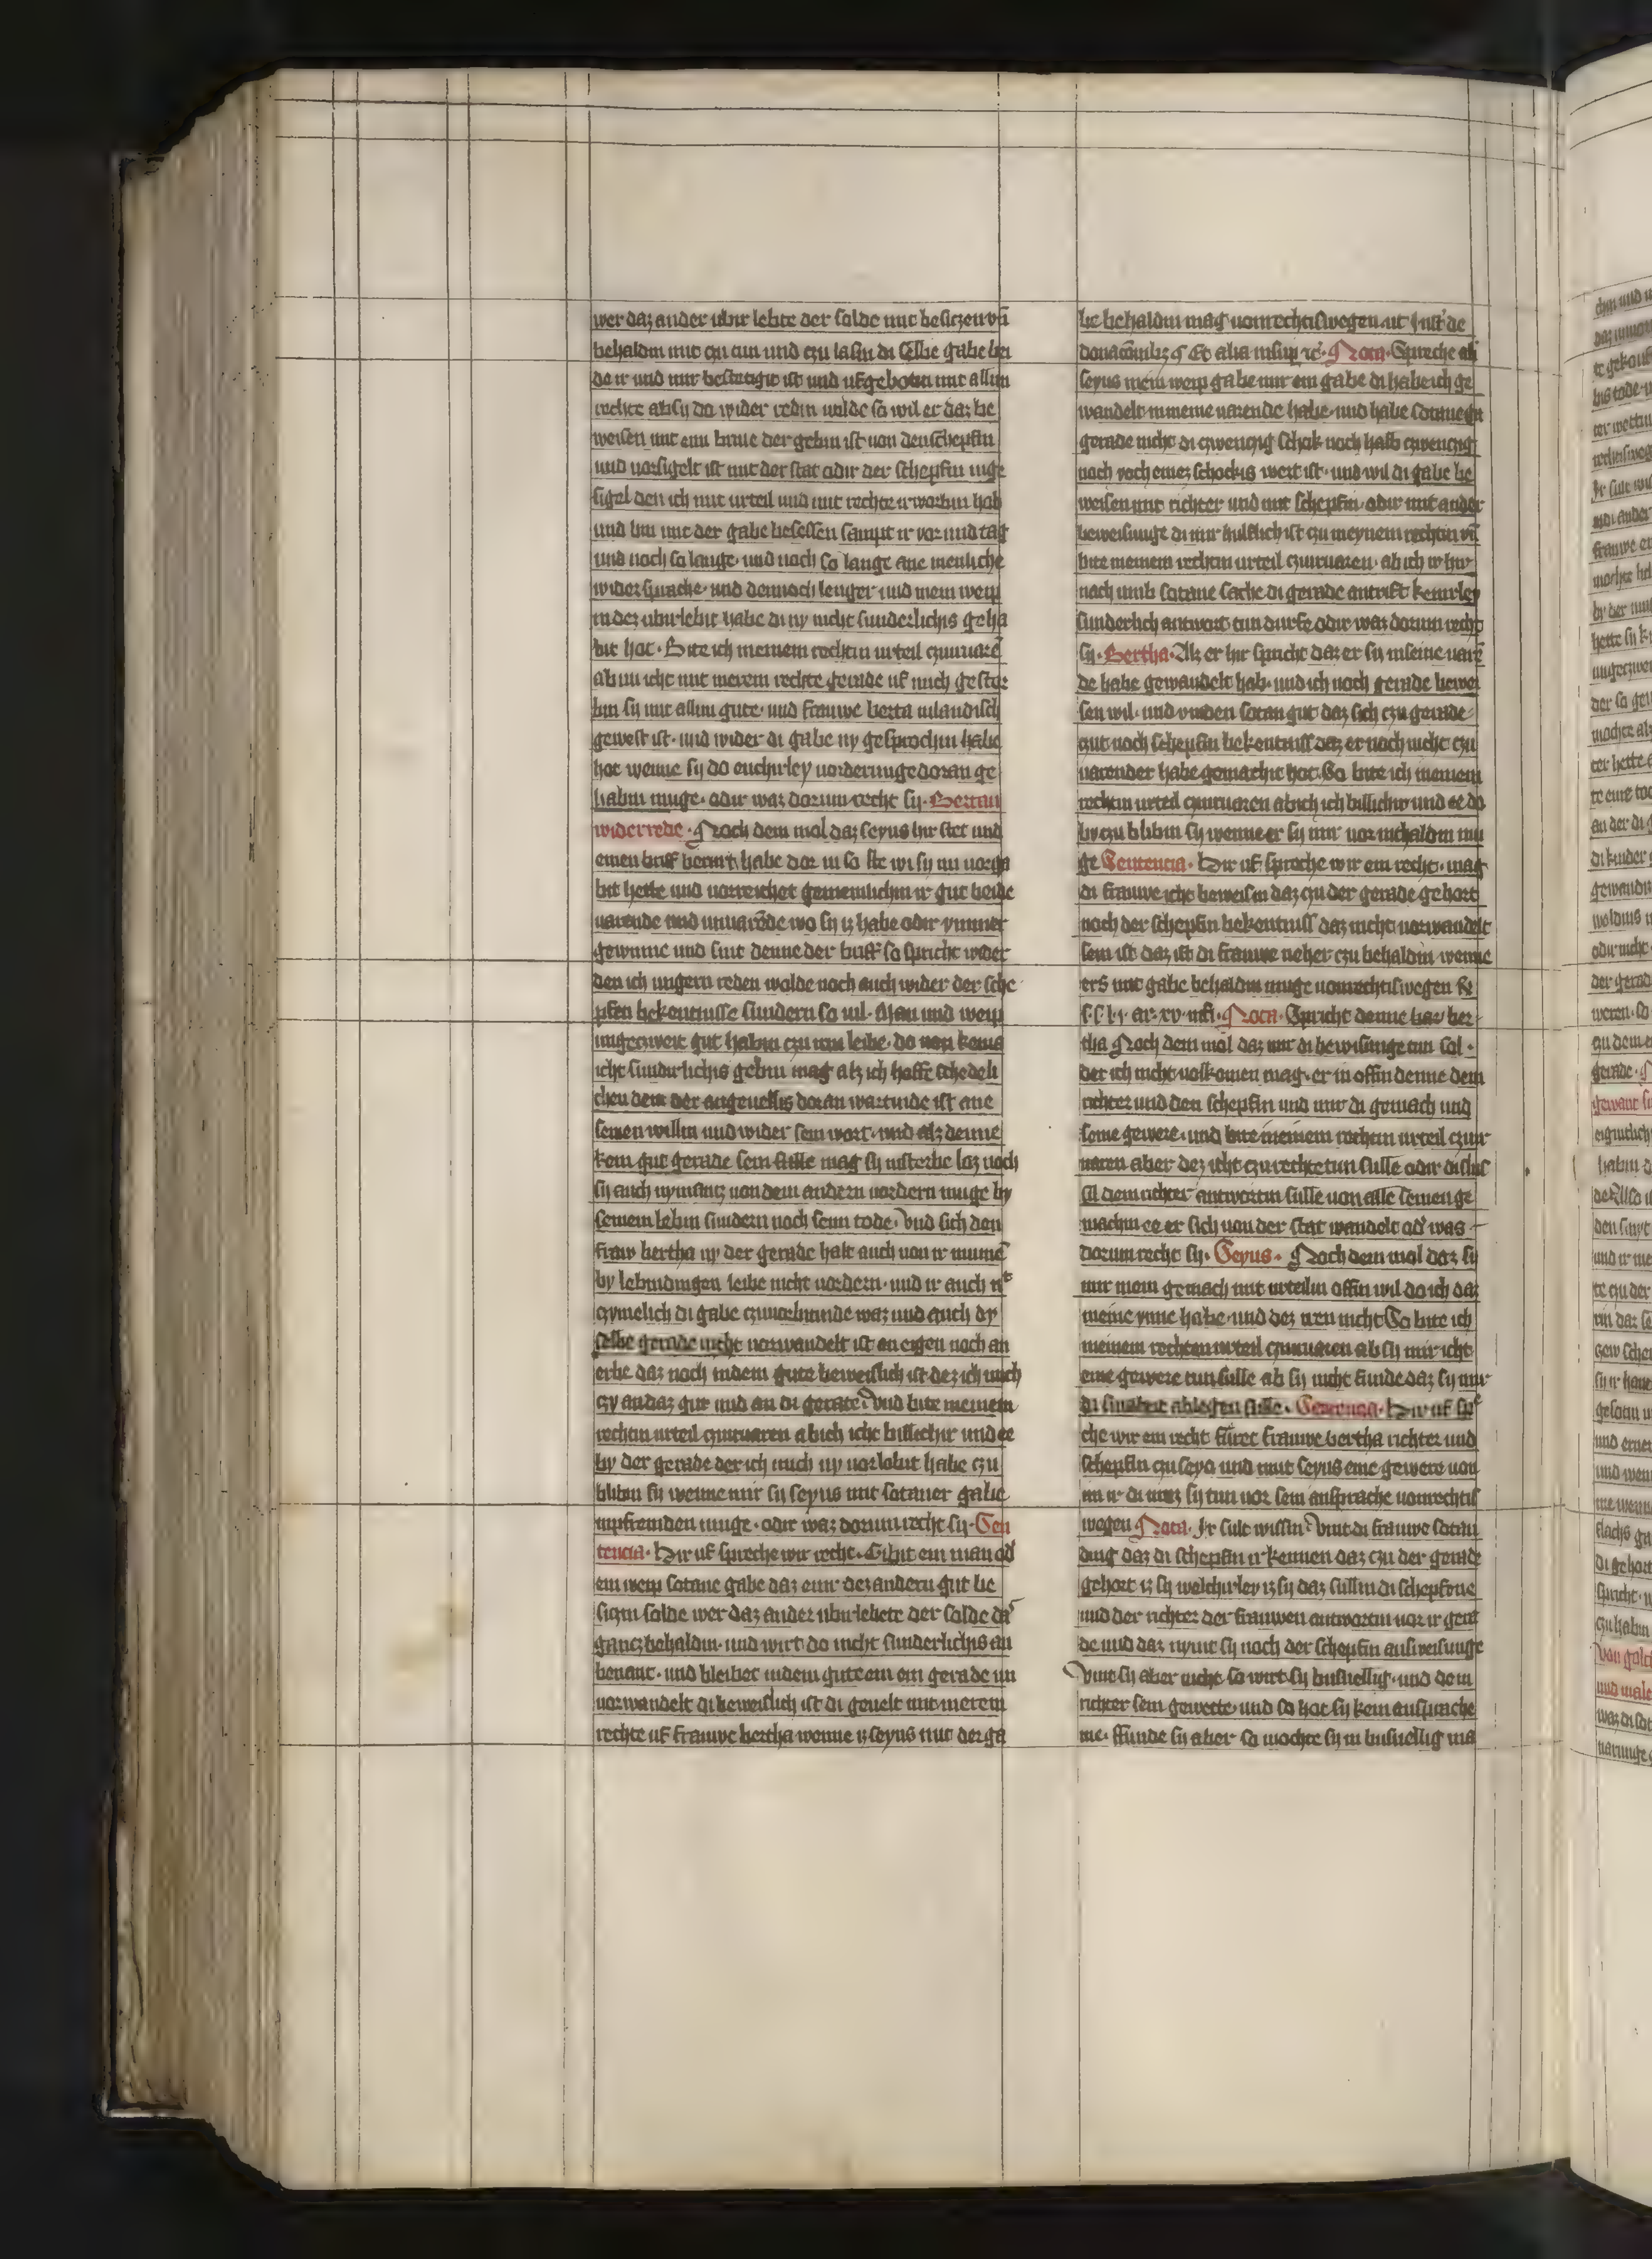 wer daz ander ubir lebte der solde mit besiczen vn̄
behaldin mit czu tun und czu lasin di selbe gabe bei
de ir und mir bestetigit ist und ufgebotin mit allim
rechte ab sy do wider redin wolde so wil er daz be
weisen mit eim briue der gebin ist von den schepfin
und vorsigelt ist mit der stat odir der schepfin inge
sigel den ich mit urteil und mit rechte irworbin hab
und bin mit der gabe besessen sampt ir vor und tag
und noch so lange und noch so lange ane menliche
widersprache und dennoch lenger und mein weip
indez ubirlebit habe di ny nicht sunderlichis geha
bit hot. Bite ich meinem rechtin urteil czuuarē
ab nu icht mit merem rechte gerade uf mich gestor
bin sy mit allim gute und frauwe berta inlandisch
gewest ist und wider di gabe ny gesprochin habe
hot wenne sy do encheirley vorderunge doran ge
habin muge odir waz dorum recht sy. Bertan
widerrede. Noch dem mol daz seyus hir stet und
einen briff bewirt habe dor in so ste wi sy im vorga
bit hette und vorreichet gemeinlichin ir gut beide
varende und unuarēde wo sy iz habe odir ymmer
gewinne und sint denne der briff so spricht wider
den ich ungern reden wolde noch auch wider der sche
pfen bekentnisse sundern so vil. Man und weip
ungeczweit gut habin czu irem leibe do von keins
icht sundirlichis gebin mag alz ich hoffe schedeli
chen dem der angeuellis doran wartinde ist ane
seinen willin und wider sein wort und alz denne
kein gut gerade sein stille mag sy insterbe loz noch
sy auch nymancz von dem andern vordern muge by
seinem lebin sundern noch seim tode. Vnd sich den
fraw bertha ny der gerade halt auch von ir mumē
by lebindingen leibe nicht vordern und ir auch nt
czymelich di gabe czuuorbrunde waz und auch dy
selbe gerade nicht vorwandelt ist an eigen noch an
erbe daz noch indem gute beweislich ist dez ich mich
czy an daz gut und an di gerate. Vnd bite meinem
rechtin urteil czuuaren ab ich icht billichir und ee
by der gerade der ich mich ny vorlobit habe czu
blibin sy wenne mir sy seyus mit sotaner gabe
inpfremden muge odir waz dorum recht sy. Sen
tencia. Hir uf spreche wir recht. Gibit ein man od
ein weip sotane gabe daz einr dez andern gut be
siczin solde wer daz ander ubirlebete der solde daz
gancz behaldin und wirt do nicht sunderlichis an
benant und bleibet indem gute ein ein gerade un
vorwandelt di beweislich ist di geuelt mit merem
rechte uf frauwe bertha wenne iz seyus mit der ga
be behaldin mag vonrechtiswegen ut Inst de
donacōnibz et alia insup rc. Nota. Spreche ab
seyus mein weip gabe mir ein gabe di habe ich ge
wandelt in meine varende habe und habe sotane ge
gerade nicht di czwenczig schok noch halb czwenczig
noch noch eines schockis wert ist und wil di gabe be
weisen mit richter und mit schepfin odir mit ander
beweisunge di mir hulflich ist czu meynem rechtin vn̄
bite meinem rechtin urteil czuuaren ab ich ir hir
noch umb sotane sache di gerade antrift keinrley
sunderlich antwort tun durfe odir waz dorum recht
sy. Bertha. Alz er hir spricht daz er sy inseine varē
de habe gewandelt hab und ich noch gerade bewei
sen wil und vinden sotan gut daz sich czu gerade
czut noch schepfin bekentniss daz er noch nicht czu
varender habe gemachit hot. So bite ich meinem
rechtin urteil czuuaren ab ich ich billichir und ee do
by czu blibin sy wenne er sy mir vor inthaldin mu
ge Sentencia. Hir uf spreche wir ein recht. mag
di frauwe icht beweisin daz czu der gerade gehort
noch der schepfin bekentniss daz nicht vorwandelt
sein ist daz ist di frauwe neher czu behaldin wenne
ers mit gabe behaldin muge vonrechtiswegen
l. i. ar. xv. Nota. Spricht denne ber
tha Noch dem mol daz mir di bewisunge tun sol.
der ich nicht volkomen mag er in offin denne dem
richter und den schepfin und mir di gemach und
seine gewere. und bite meinem rechtin urteil czuir
uaren aber dez icht czu rechte tun sulle odir di slus
sil dem richter antwortin sulle von alle seinen ge
machin ee er sich von der stat wandelt od was
dorum recht sy. Seyus. Noch dem mol daz sy
mir mein gemach mit urteilin offin wil do ich daz
meine ynne habe und dez iren nicht So bite ich
meinem rechten urteil czuuaren ab sy mir icht
eine gewere tun sulle ab sy nicht finde daz sy mir
di smaheit ablegen sulle. Sentencia. Hir uf spe
che wir ein recht furet frauwe bertha richter und
schepfin czu seyo und mit seyus eine gewere von
im ir di muz sy tun vor sein ansprache vonrechtis
wegen Nota. Ir sult wissin. Vint di frauwe sotan
ding daz di schepfin irkennen daz czu der gerade
gehort iz sy welchirley iz sy daz sullin di schepfene
und der richter der frauwen antwortin vor ir gera
de und daz nymt sy noch der schepfin ausweisunge
Vint sy aber nicht so wirt sy busuellig und dem
richter sein gewette und so hot sy kein ansprache
me. ffunde sy aber so mochte sy in busuellig ma